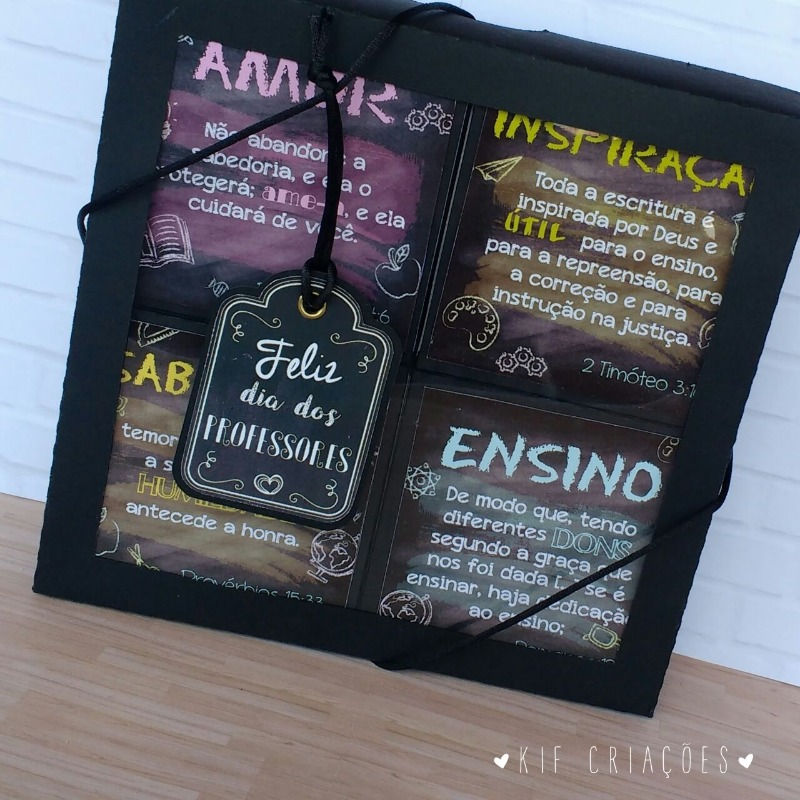 AMOR
Não abandone a
sabedoria, e ela o
otegerá; ame-a, e ela
cuidará de você.
4:6
INSPIRAÇÃ
Toda a escritura é
inspirada por Deus e
ÚTIL para o ensino,
para a repreensão, para
a correção e para
instrução na justiça.
2 Timóteo 3:1
SAB
temor
a s
HUMILD
antecede a honra.
Provérbios 15:33
Feliz
dia dos
PROFESSORES
ENSINO
De modo que, tendo
diferentes DONS
segundo a graça que
nos foi dada [... se é
ensinar, haja dedicação
ao ensino;
KIF CRIAÇÕES